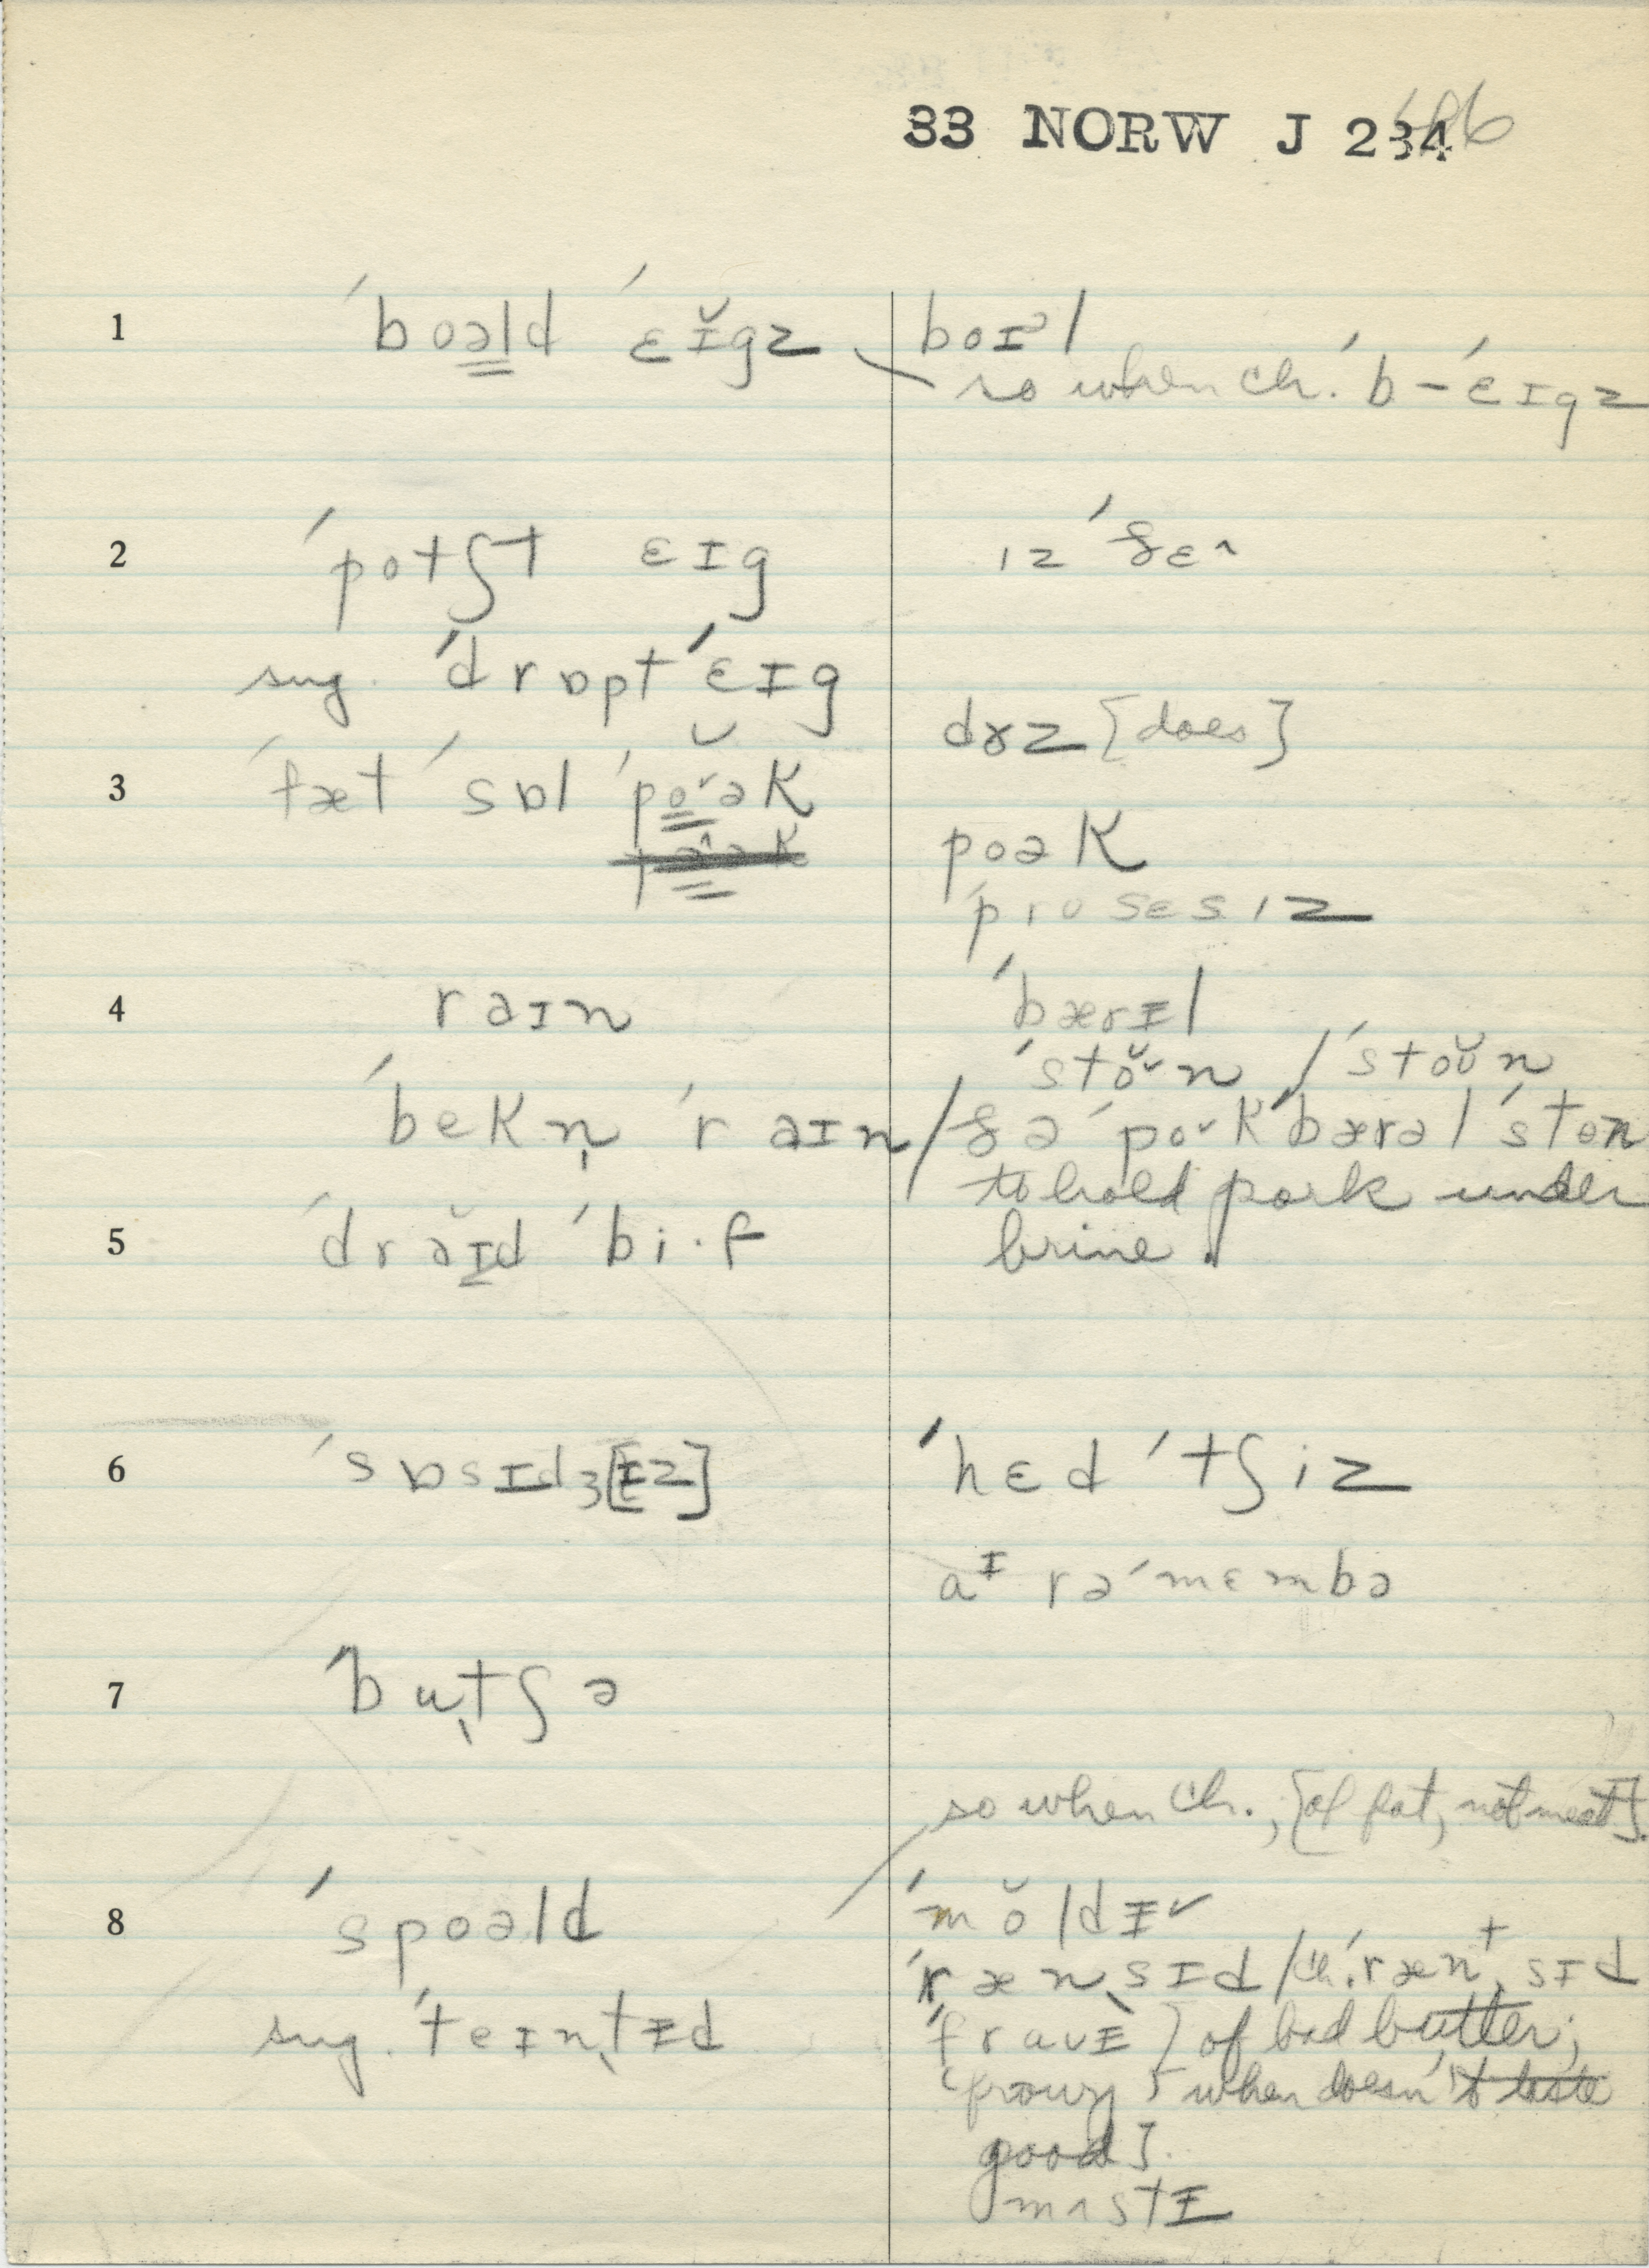 33 NORW J 234
1 ˈboəld ˈɛɪ̆gz
boɪᵊl
so when ch. ˈb – ˈɛɪgz
2 ˈpotʃt ɛɪg
ɪz ˈðɛ˄
sug. ˈdrɒpt ˈɛɪg
dɤz [does]
3 ˈfæt ˈsɒl ˈpo˅ək
poək
ˈprosɛsɪz
4 rəɪn
ˈbærɪl
ˈstŏ˅n / ˈstoʊ̆n
ˈbekn̩ ˈrəɪn / ðə ˈpo˅k ˈbærəl ˈston
to hold pork under
5 ˈdrə̆ɪd ˈbi·f
brine.
6 ˈsɒsɪdʒ[ɪz]
ˈhɛd ˈtʃiz
aᶦ rəˈmɛmbə
7 ˈbutʃə
so when ch., [of fat, not meat].
8 ˈspoəld
ˈmŏldɪ˅
ˈrænsɪd / ch. ˈrænᵗsɪd
sug. ˈteɪntɪd
ˈfraʊɪ } of bad butter;
(frowy } when doesn't taste
good].
mʌstɪ